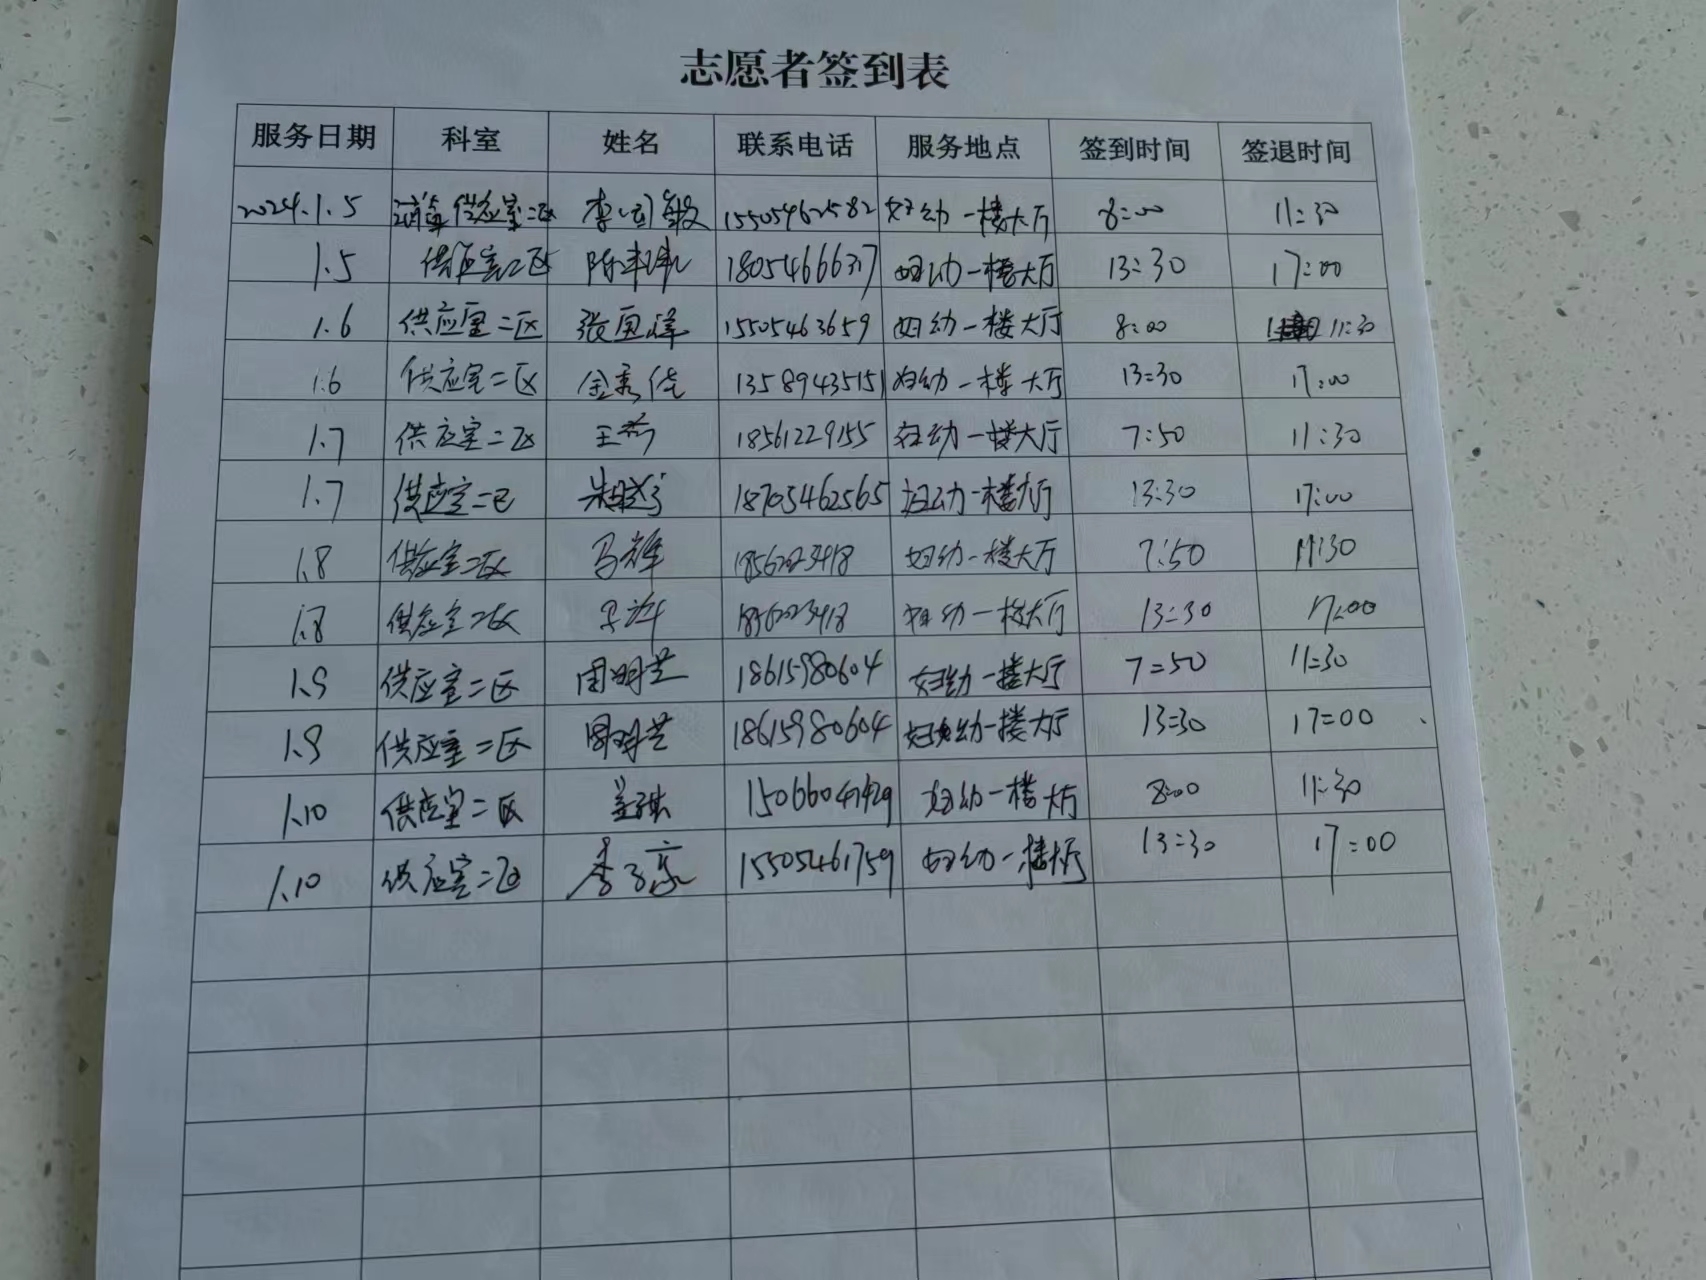 志愿者签到表
服务日期 科室 姓名 联系电话 服务地点 签到时间 签退时间
2024.1.5 消毒供应室二区 李国敏 15505462582 妇幼一楼大厅 8:00 11:30
1.5 供应室二区 陈 18054666317 妇幼一楼大厅 13:30 17:00
1.6 供应室二区 张 15505463659 妇幼一楼大厅 8:00 11:30
1.6 供应室二区 金秀佳 13589435151 妇幼一楼大厅 13:30 17:00
1.7 供应室二区 王 18561229155 妇幼一楼大厅 7:50 11:30
1.7 供应室二区 18705462565 妇幼一楼大厅 13:30 17:00
1.8 供应室二区 马 妇幼一楼大厅 7:50 11:30
1.8 供应室二区 妇幼一楼大厅 13:30 17:00
1.9 供应室二区 周明芝 18615980604 妇幼一楼大厅 7:50 11:30
1.9 供应室二区 周明芝 18615980604 妇幼一楼大厅 13:30 17:00
1.10 供应室二区 妇幼一楼大厅 8:00 11:30
1.10 供应室二区 李 15505461759 妇幼一楼大厅 13:30 17:00